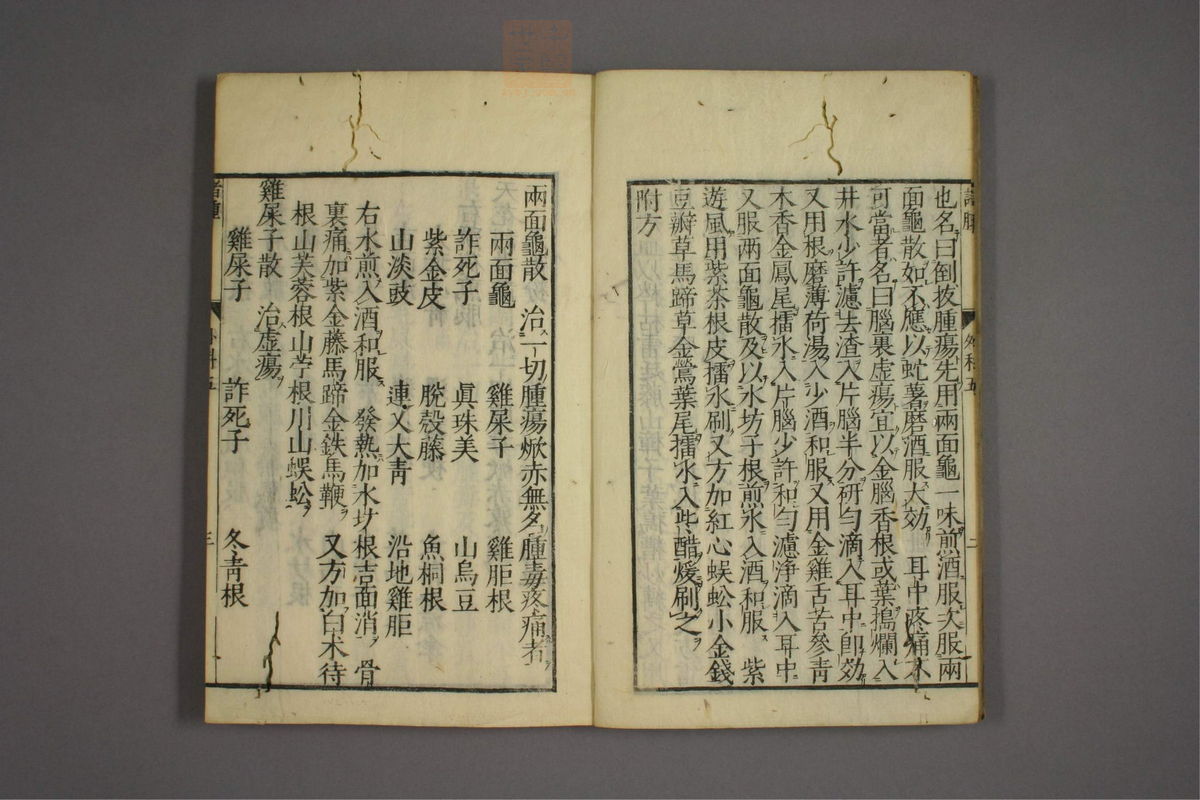 也名曰倒拔腫瘍先用兩面龜一味煎酒服次服兩
面龜散如不應以虻薯磨酒服大効 耳中疼痛不
可當者名曰腦裏虛瘍宜以金腦香根或葉搗爛入
井水少許濾去渣入片腦半分研勻滴入耳中即効
又用根磨薄荷湯入少酒和服又用金雞舌苦參青
木香金鳳尾擂水入片腦少許和勻濾淨滴入耳中
又服兩面龜散及以水坊子根煎水入酒和服 紫
遊風用紫茶根皮擂水刷又方加紅心蜈蚣小金錢
豆瓣草馬蹄草金鶯葉尾擂水入些醋煖刷之
附方
外科五
二
兩面龜散 治一切腫瘍焮赤無名腫毒疼痛者
兩面龜 雞屎子 雞胵根
詐死子 真珠美 山烏豆
紫金皮 脫殼藤 魚桐根
山淡豉 連乂大青 沿地雞胵
右水煎入酒和服 發熱加水坊根吉面消 骨
裏痛加紫金藤馬蹄金鉄馬鞭 又方加白朮待
根山芙蓉根山苧根川山蜈蚣
雞屎子散 治虛瘍
雞屎子 詐死子 冬青根
外科五
三